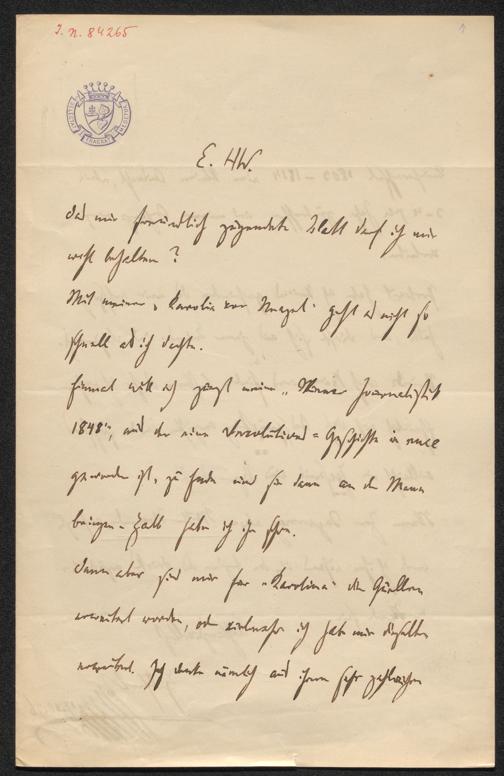 I. N. 84265
E. HW.
Das mir freundlich zugesendete Blatt darf ich mir
wohl behalten?
Mit meiner „Karolin von Neuzel" geht es nicht so
schnell als ich dachte.
Einmal will ich zuerst meine „Wiener Journalistik
1848", aus der eine Revolutions-Geschichte in nuce
geworden ist, zu Ende und sie dann an den Mann
bringen - halb habe ich ihn schon.
Dann aber sind mir für „Karolina" die Quellen
erweitert worden, oder vielmehr ich habe mir dieselben
erweitert. Ich denke nämlich aus ihren sehr zahlreichen